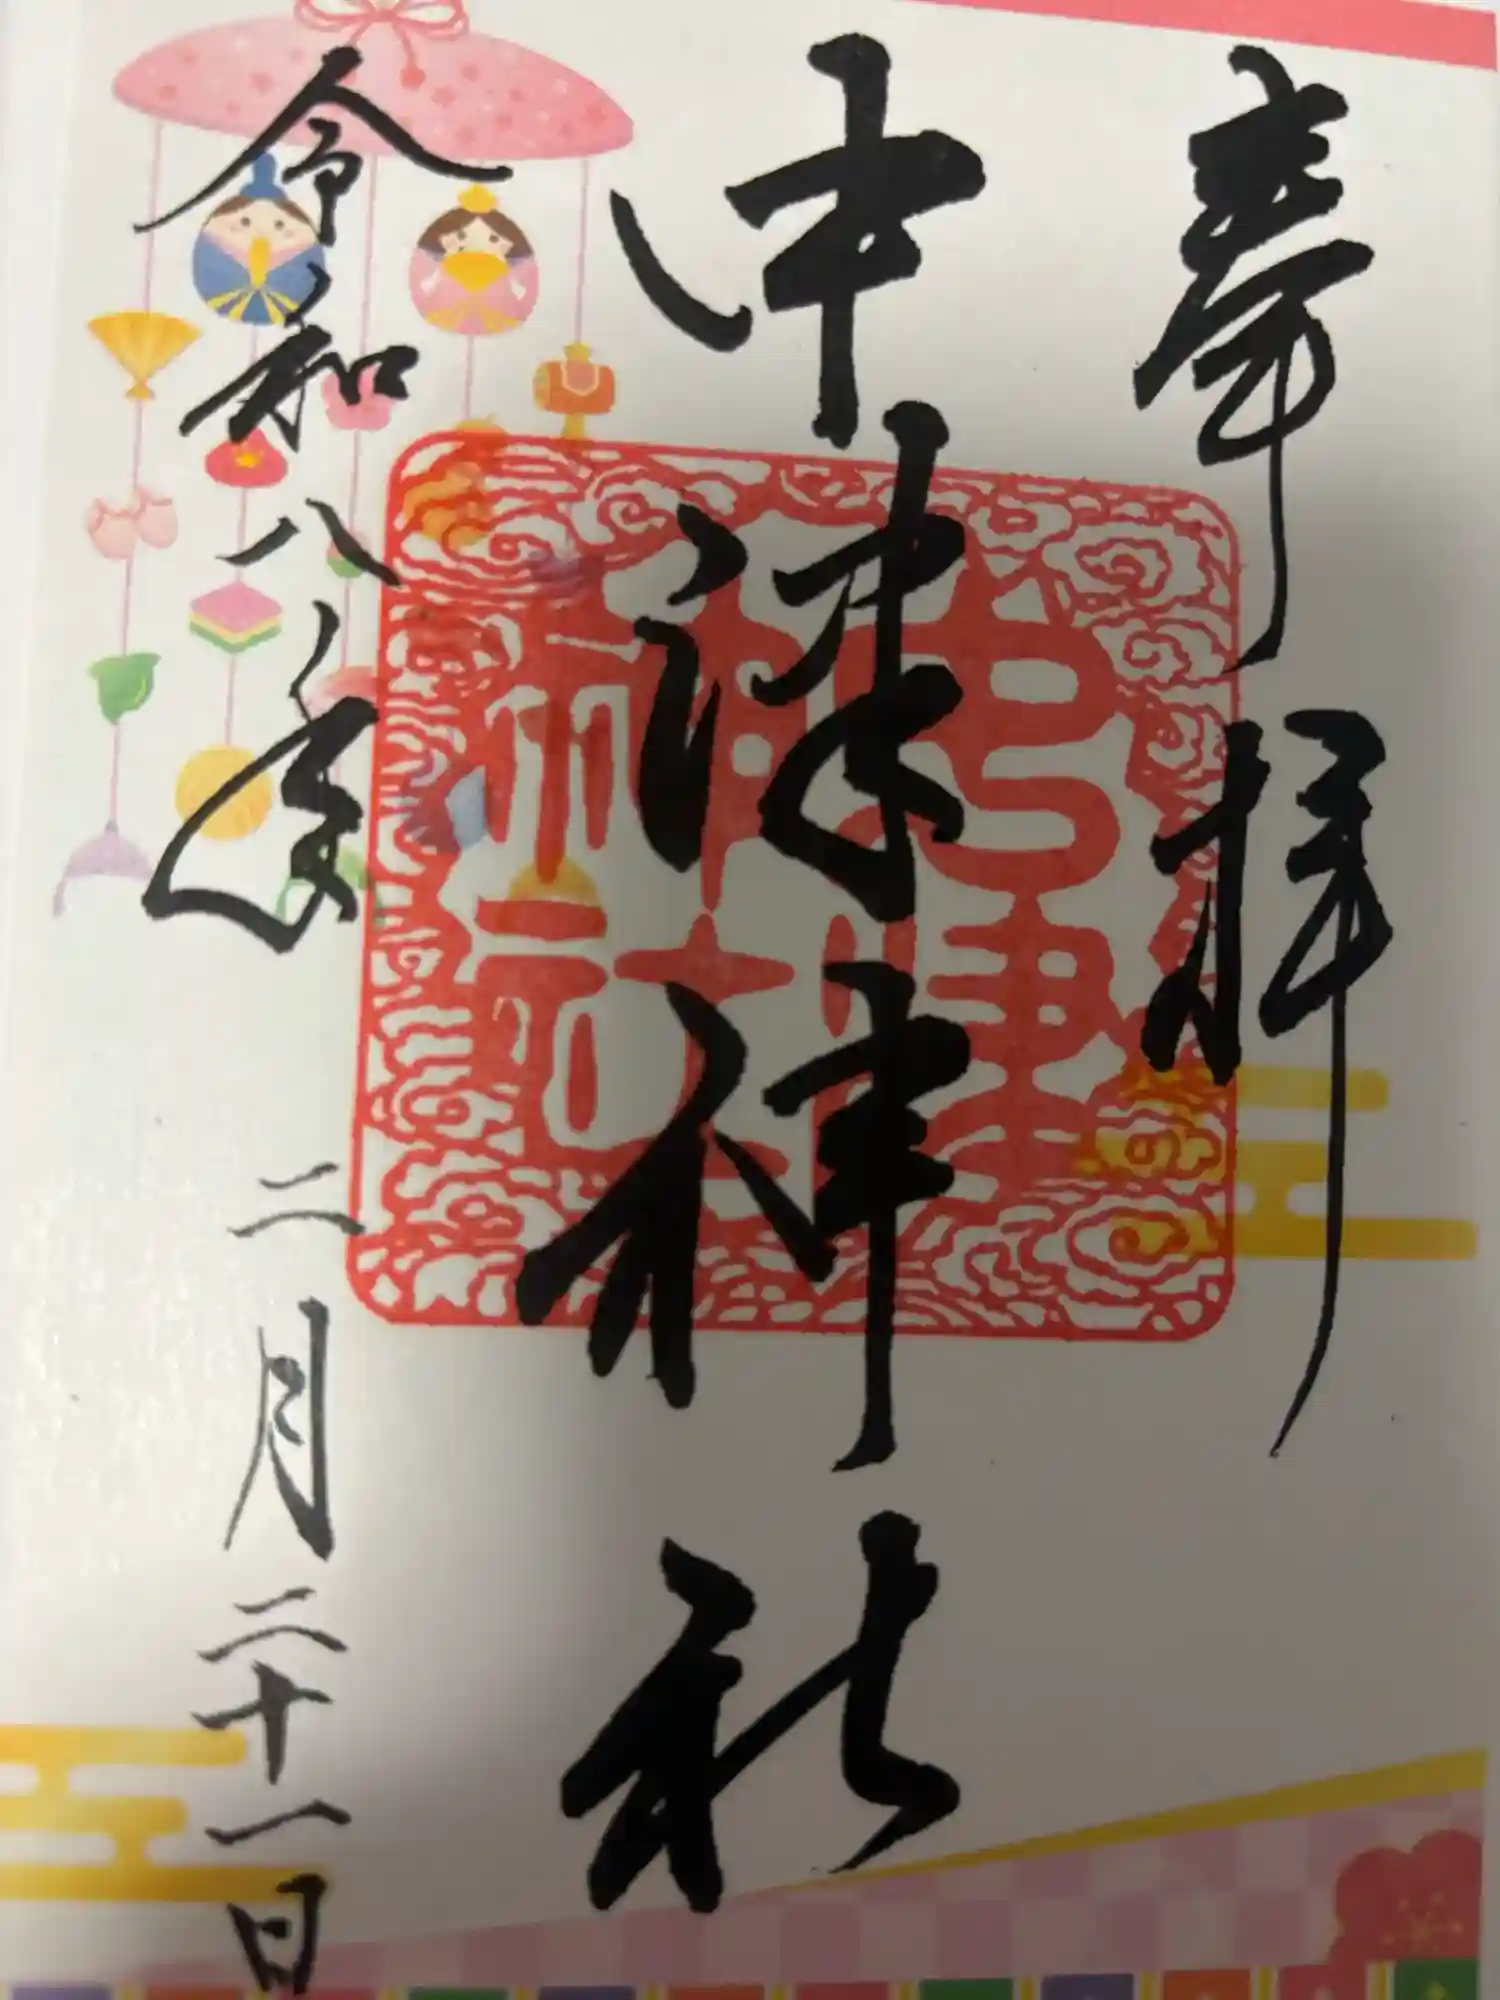 奉拝
中津神社
令和八年 二月二十一日